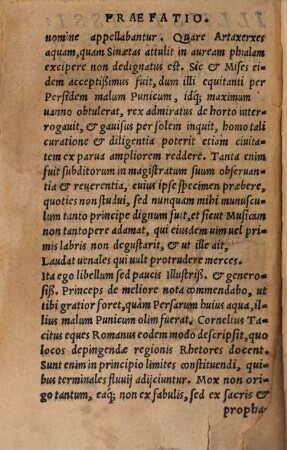 PRAEFATIO.
nomine appellabantur. Quare Artaxerxes
aquam, quam Sinætas attulit in auream phialam
excipere non dedignatus est. Sic & Mises ei
dem acceptißimus fuit, dum illi equitanti per
Persidem malum Punicum, idq; maximum
uanno obtulerat, rex admiratus de horto inter
rogauit, & gauisus per solem inquit, homo tali
curatione & diligentia poterit etiam ciuita
tem ex parua ampliorem reddere. Tanta enim
fuit subditorum in magistratum suum obseruan
tia & reuerentia, cuius ipse specimen præbere,
quoties non studui, sed nunquam mihi munuscu
lum tanto principe dignum fuit, et sicut Musicam
non tantopere adamat, qui eiusdem uim uel pri
mis labris non degustarit, & ut ille ait,
Laudat uenales qui uult protrudere merces.
Ita ego libellum sed paucis Illustriß. & genero-
siß. Princeps de meliore nota commendabo, ut
tibi gratior foret, quam Persarum huius aqua, il-
lius malum Punicum olim fuerat. Cornelius Ta-
citus eques Romanus eodem modo descripsit, quo
locos depingendæ regionis Rhetores docent.
Sunt enim in principio limites constituendi, qui-
bus terminales fluuij adijciuntur. Mox non ori-
go tantum, eaq; non ex fabulis, sed ex sacris &
propha-